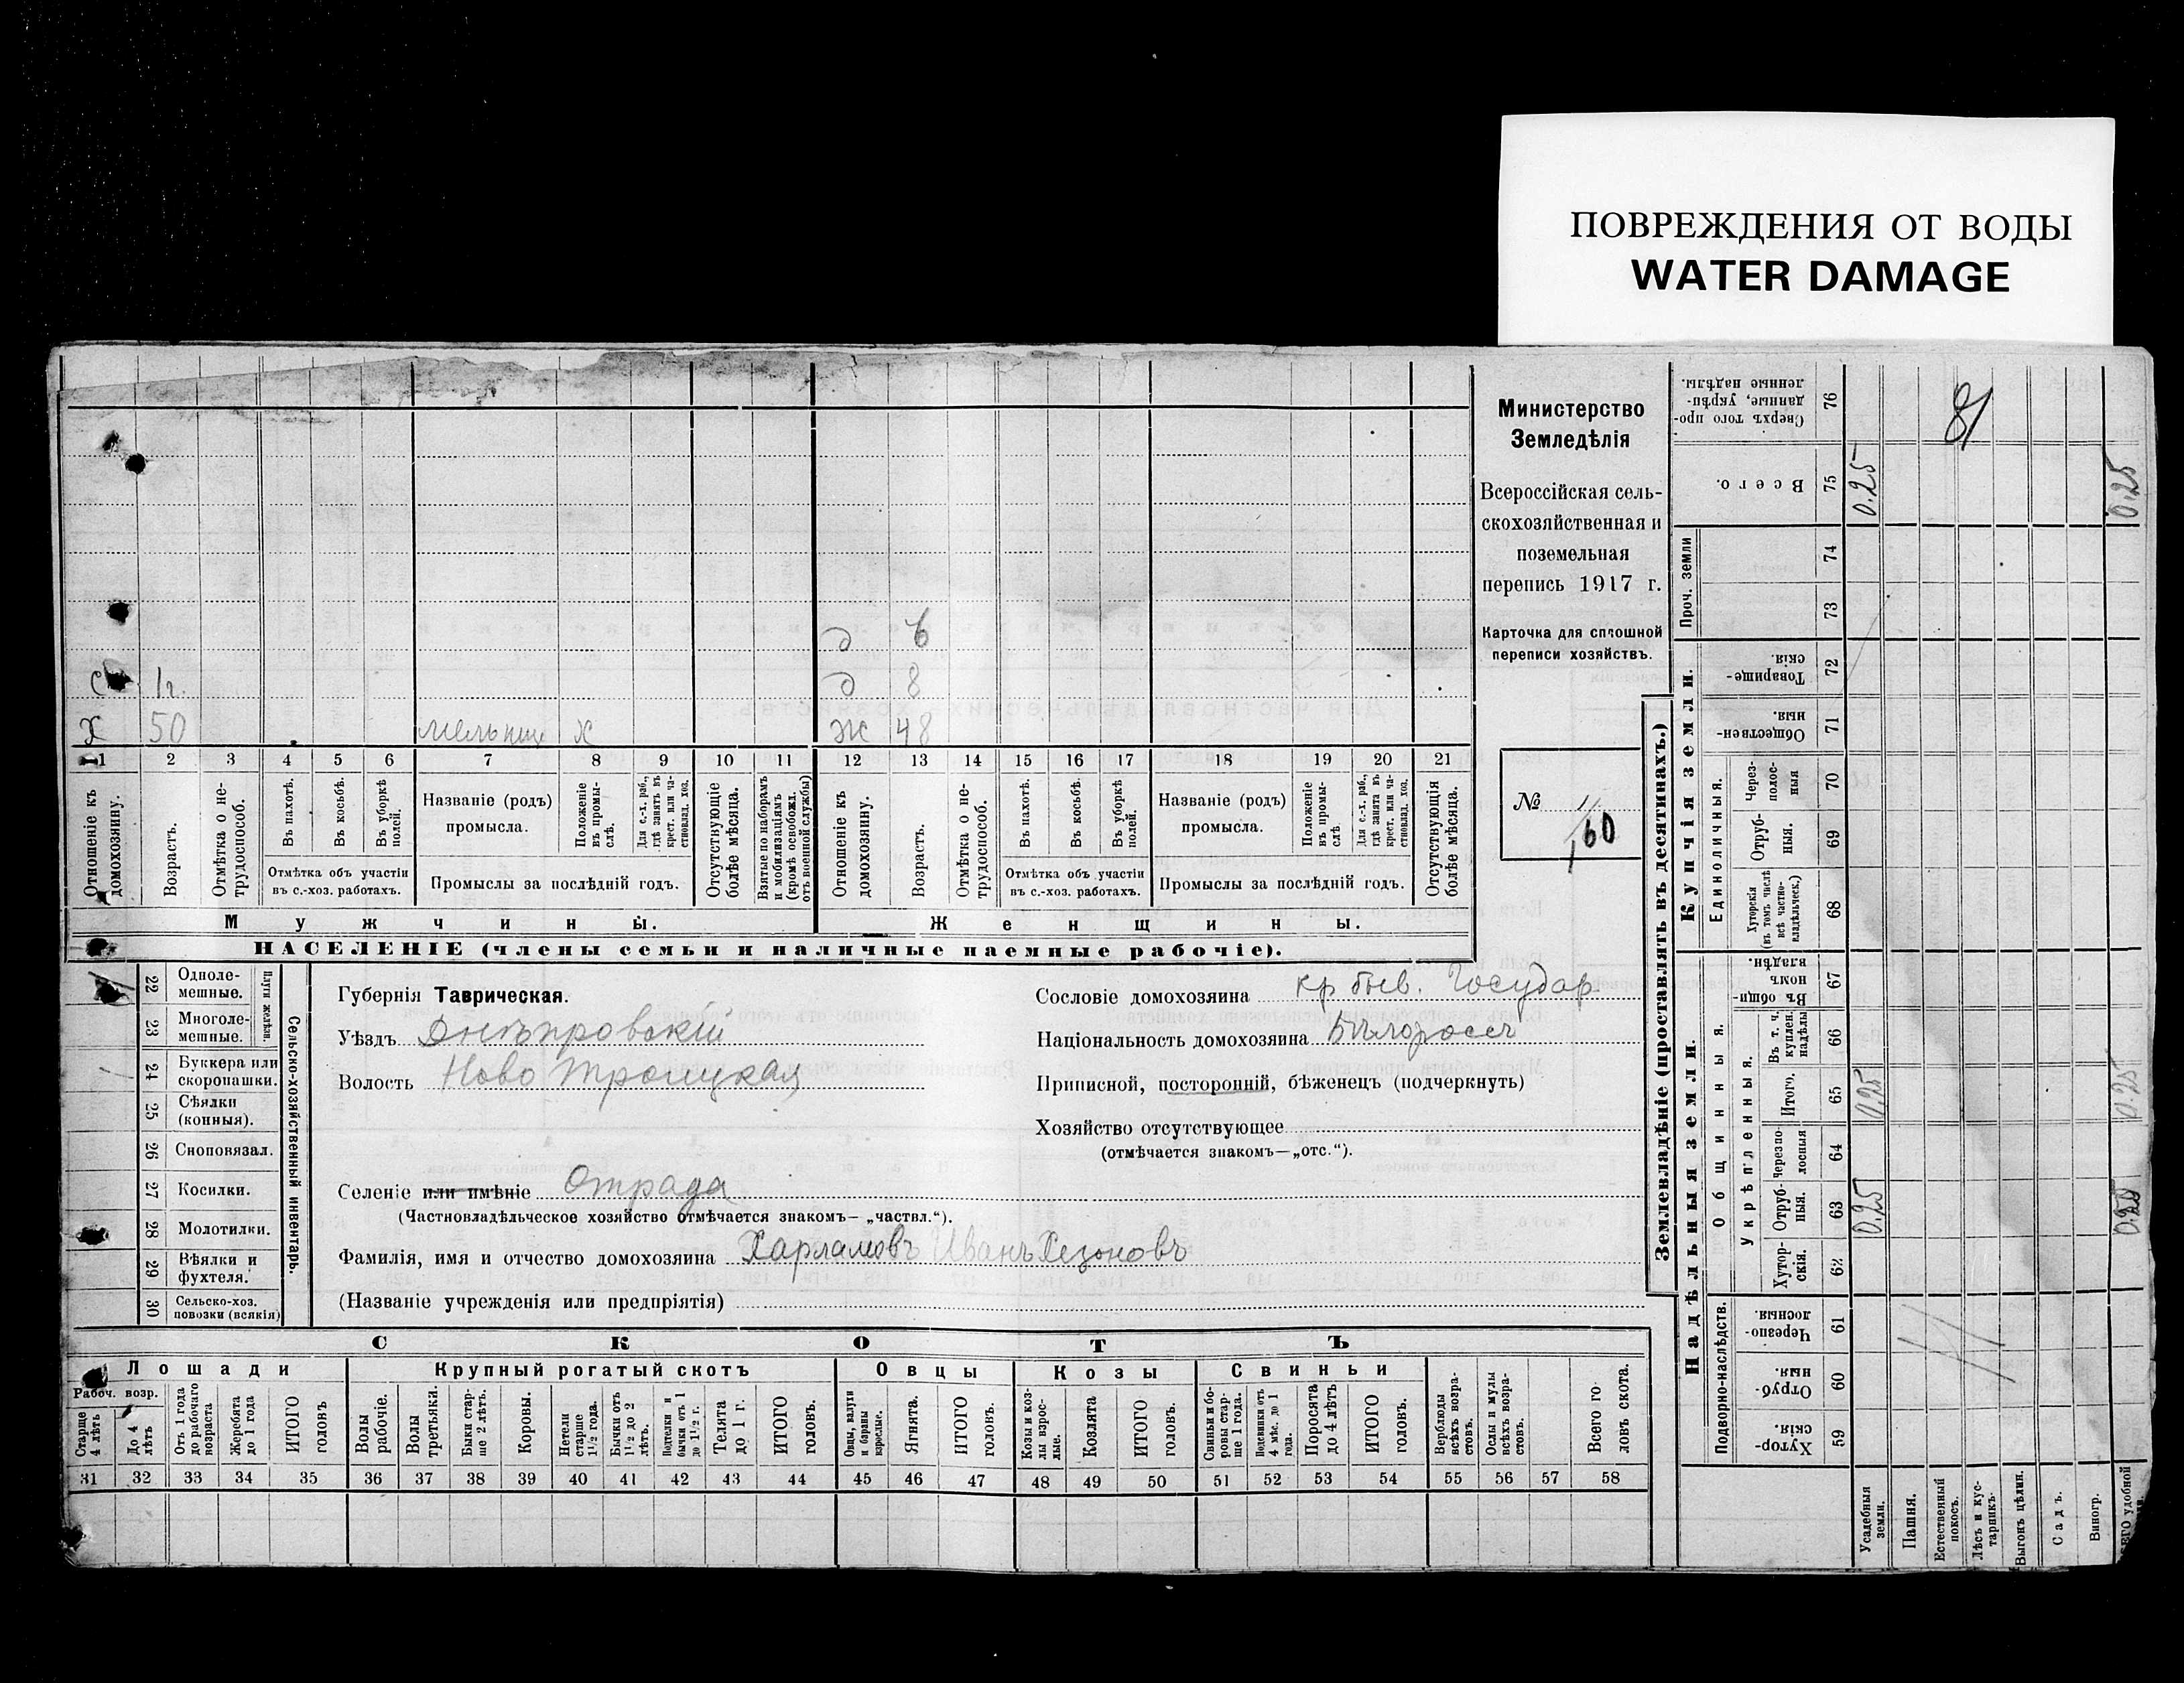 ПОВРЕЖДЕНИЯ ОТ ВОДЫ
WATER DAMAGE
Министерство
Земледѣлія
Всероссійская сель-
скохозяйственная и
поземельная
перепись 1917 г.
Карточка для сплошной
переписи хозяйствъ.
№ 11
160
д 6
с 1 г. д 8
х 50 х ж 48
1 2 3 4 5 6 7 8 9 10 11 12 13 14 15 16 17 18 19 20 21
Отношеніе къ домохозяину.
Возрастъ.
Отмѣтка о не-трудоспособ.
Въ пахотѣ.
Въ косьбѣ.
Въ уборкѣ полей.
Отмѣтка объ участіи
въ с.-хоз. работахъ.
Названіе (родъ)
промысла.
Положеніе въ промы-слѣ.
Для с.-х. раб., гдѣ занятъ въ крест. или ча-стновлад. хоз.
Промыслы за послѣдній годъ.
Отсутствующіе болѣе мѣсяца.
Взятые по наборамъ и мобилизаціямъ (кромѣ освобожд. отъ военной службы)
Отношеніе къ домохозяину.
Возрастъ.
Отмѣтка о не-трудоспособ.
Въ пахотѣ.
Въ косьбѣ.
Въ уборкѣ полей.
Отмѣтка объ участіи
въ с.-хоз. работахъ.
Названіе (родъ)
промысла.
Положеніе въ промы-слѣ
Для с.-х. раб., гдѣ занята въ крест. или ча-стновлад. хоз.
Промыслы за послѣдній годъ.
Отсутствующія болѣе мѣсяца.
Мужчины. Женщины.
НАСЕЛЕНІЕ (члены семьи и наличные наемные рабочіе).
Сельско-хозяйственный инвентарь.
Плуги желѣзн.
22 Одноле-мешные.
23 Многоле-мешные.
24 Буккера или скоропашки.
25 Сѣялки (конныя).
26 Сноповязал.
27 Косилки.
28 Молотилки.
29 Вѣялки и фухтеля.
30 Сельско-хоз. повозки (всякія)
Губернія Таврическая.
Уѣздъ Днѣпровскій
Волость Ново Троицкая
Селеніе или имѣніе Отрада
(Частновладѣльческое хозяйство отмѣчается знакомъ— „частвл.“).
Фамилія, имя и отчество домохозяина Харламовъ Иванъ
(Названіе учрежденія или предпріятія)
Сословіе домохозяина кр. быв. Государ.
Національность домохозяина
Приписной, посторонній, бѣженецъ (подчеркнуть)
Хозяйство отсутствующее
(отмѣчается знакомъ—„отс.“).
СКОТЪ
Лошади Крупный рогатый скотъ Овцы Козы Свиньи
Рабоч. возр.
Старше 4 лѣтъ
До 4 лѣтъ
Отъ 1 года до рабочаго возраста
Жеребята до 1 года
ИТОГО головъ
Волы рабочіе.
Волы третьяки.
Быки стар-ше 2 лѣтъ.
Коровы.
Нетели старше 1½ года.
Бычки отъ 1½ до 2 лѣтъ.
Подтелки и бычки отъ 1 до 1½ г.
Телята до 1 г.
ИТОГО головъ.
Овцы, валухи и бараны взрослые.
Ягнята.
ИТОГО головъ.
Козы и коз-лы взрос-лые.
Козлята
ИТОГО головъ.
Свиньи и бо-ровы стар-ше 1 года.
Подсвинки отъ 4 мѣс. до 1 года.
Поросята до 4 лѣтъ
ИТОГО головъ.
Верблюды всѣхъ возра-стовъ.
Ослы и мулы всѣхъ возра-стовъ.
Всего го-ловъ скота.
31 32 33 34 35 36 37 38 39 40 41 42 43 44 45 46 47 48 49 50 51 52 53 54 55 56 57 58
Землевладѣніе (проставлять въ десятинахъ.)
Купчія земли.
Надѣльныя земли.
Сверхъ того про-данные, укрѣп-ленные надѣлы. 76
Всего. 75 0.25 0.25
81
Проч. земли
74
73
Товарище-скія. 72
Обществен-ныя. 71
Единоличныя.
Через-полос-ныя 70
Отруб-ныя. 69
Хуторскія (въ томъ числѣ всѣ частно-владѣльческ.) 68
Въ общин-номъ владѣн. 67
Общинныя.
Укрѣпленныя.
Въ т. ч. куплен. надѣлы 66
Итого. 65 0.25 0.25
Черезпо-лосныя 64
Отруб-ныя. 63 0.25 0.25
Хутор-скія. 62
Подворно-наслѣдств.
Черезпо-лосныя. 61
Отруб-ныя. 60
Хутор-скія. 59
Усадебныя земли.
Пашня.
Естественный покосъ.
Лѣсъ и кус-тарникъ.
Выгонъ цѣлин.
Садъ.
Виногр.
удобной